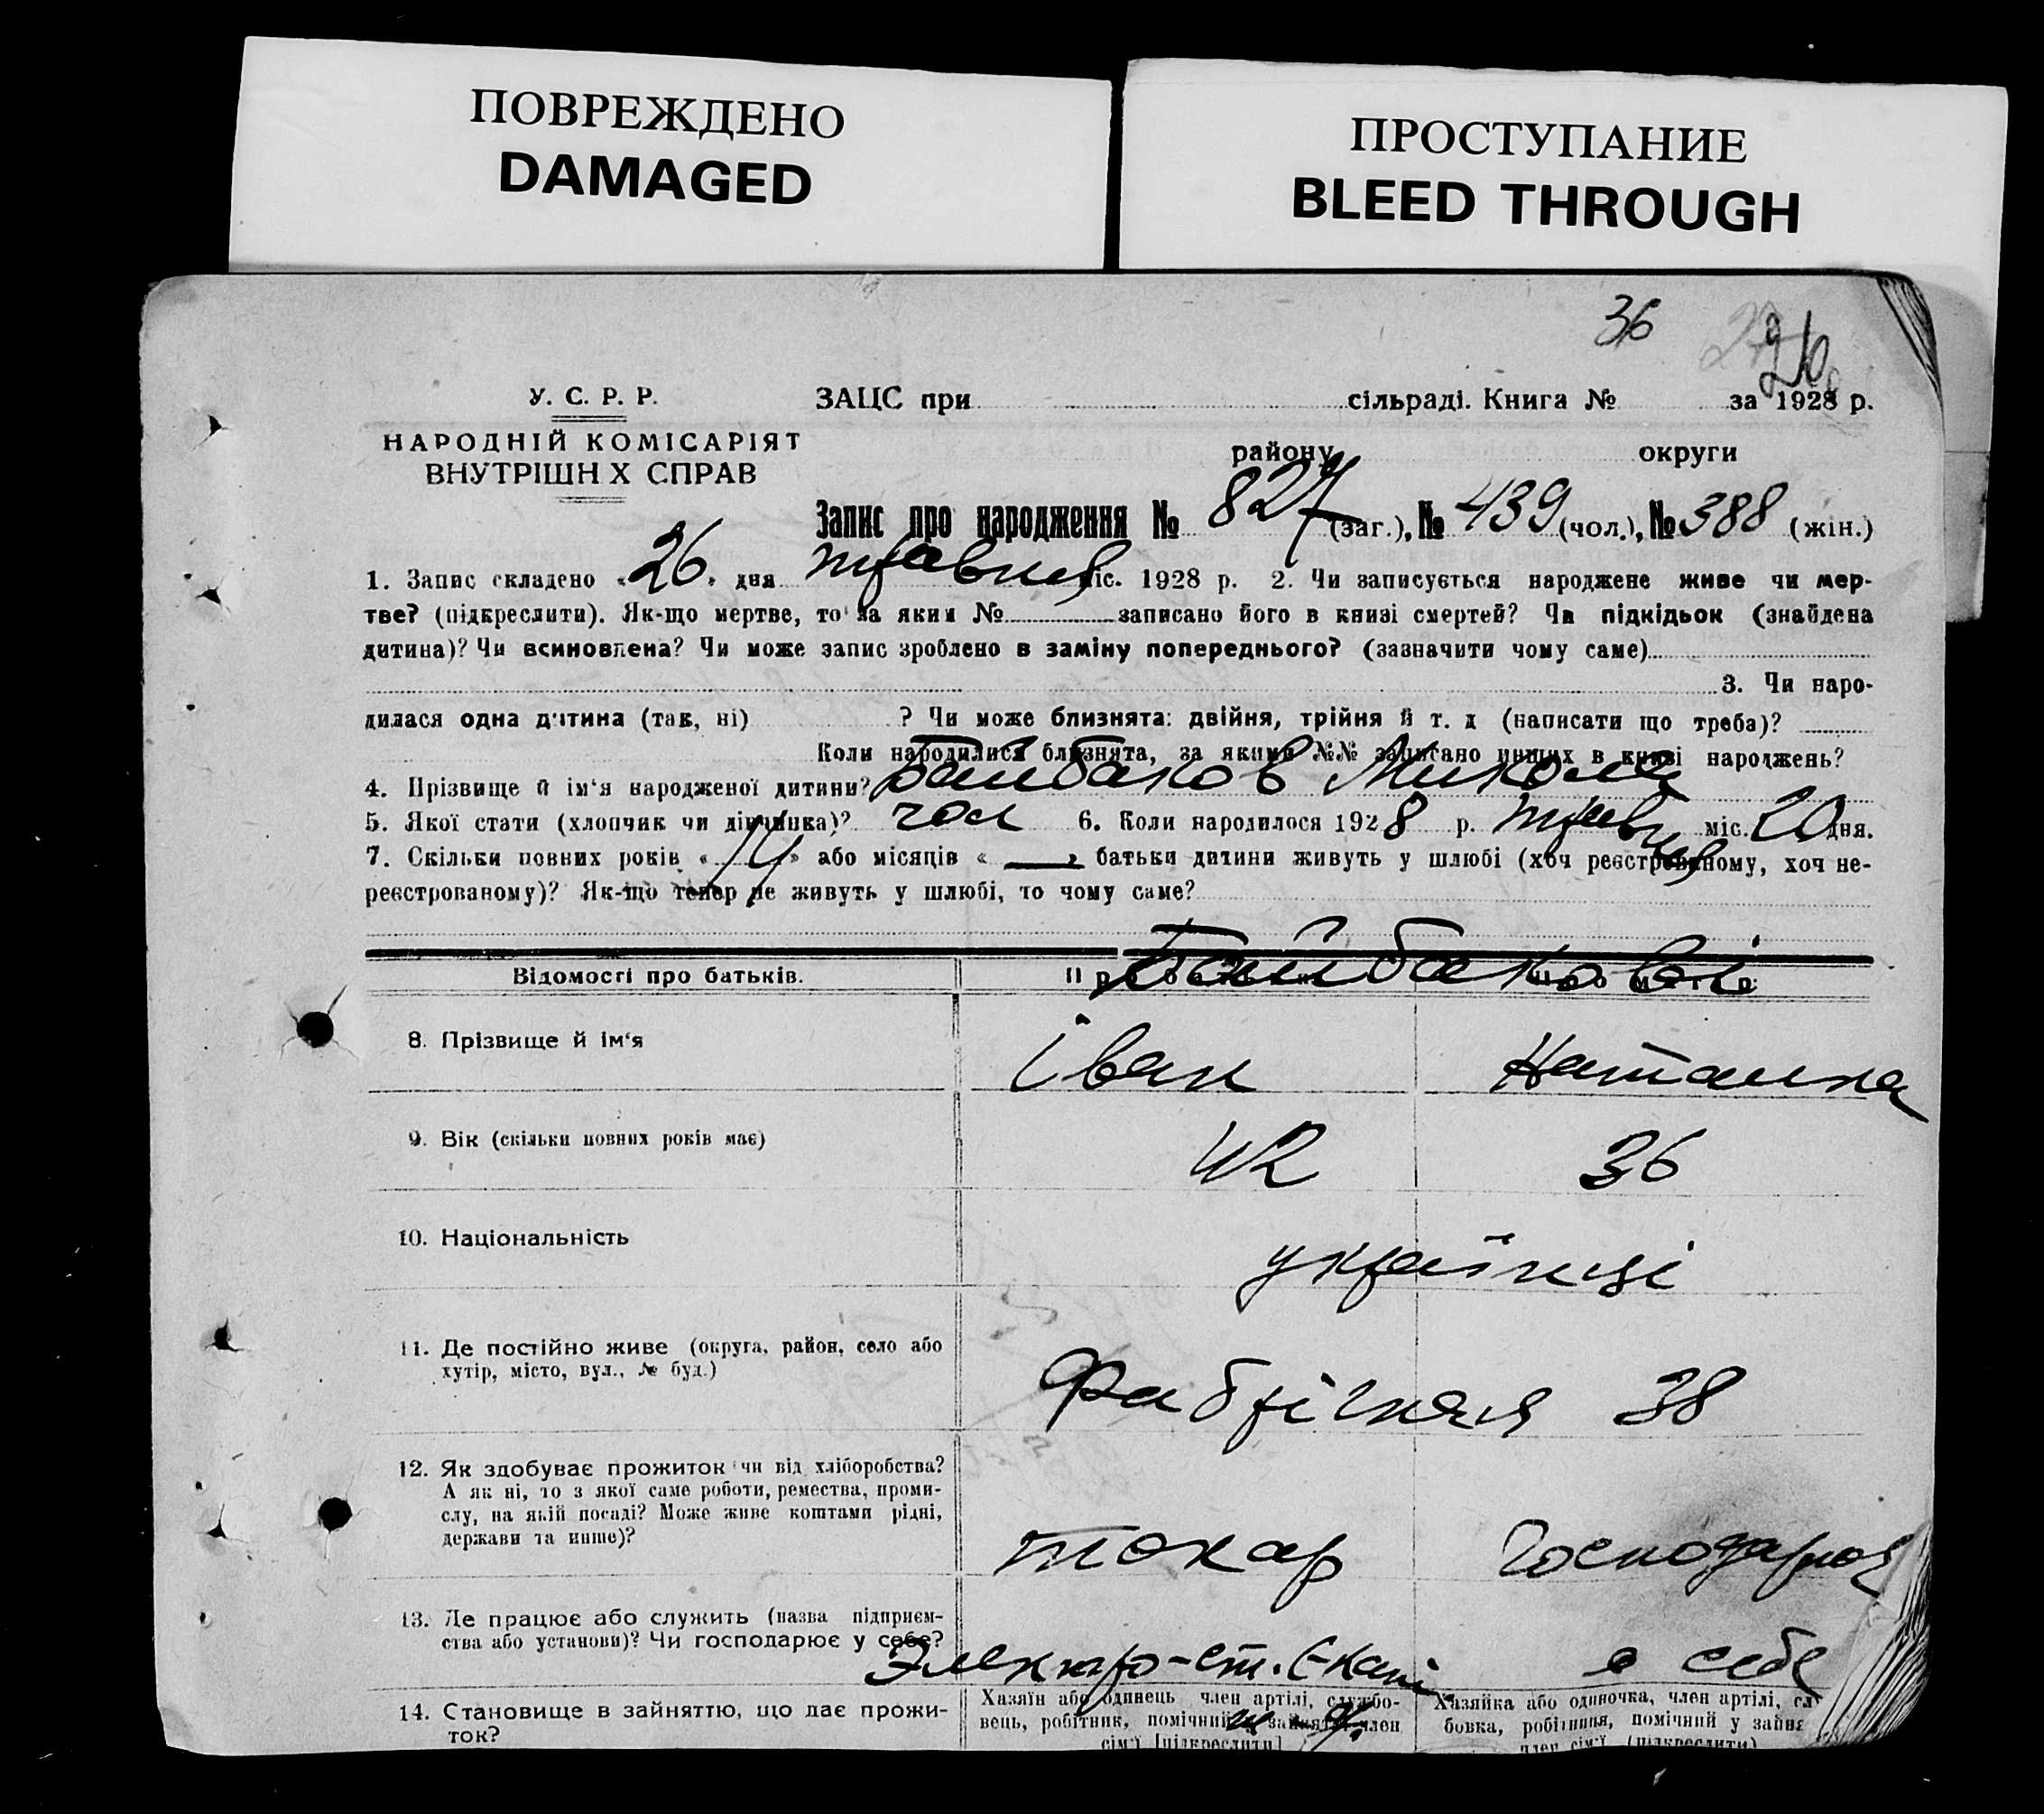 ПОВРЕЖДЕНО
DAMAGED
ПРОСТУПАНИЕ
BLEED THROUGH
36
26
У. С. Р. Р.
НАРОДНІЙ КОМІСАРІЯТ
ВНУТРІШН Х СПРАВ
ЗАЦС при сільраді. Книга № за 1928 р.
району округи
Запис про народження № 827 (заг.), № 439 (чол.), № 388 (жін.)
1. Запис складено «26» дня травня міс. 1928 р. 2. Чи записується народжене живе чи мер-
тве? (підкреслити). Як-що мертве, то за яким № записано його в книзі смертей? Чи підкідьок (знайдена
дитина)? Чи всиновлена? Чи може запис зроблено в заміну попереднього? (зазначити чому саме)
3. Чи наро-
дилася одна дитина (так, ні) ? Чи може близнята: двійня, трійня й т. д (написати що треба)?
Коли народилися близнята, за якими №№ записано инших в книзі народжень?
4. Прізвище й ім'я народженої дитини? Байбаков Микола
5. Якої стати (хлопчик чи дівчинка)? чол 6. Коли народилося 1928 р. травня міс. 20 дня.
7. Скільки повних років «14» або місяців «—» батьки дитини живуть у шлюбі (хоч реєстрованому, хоч не-
реєстрованому)? Як-що тепер не живуть у шлюбі, то чому саме?
Відомості про батьків. Про батька Про матір
Байбакові
8. Прізвище й ім'я Іван Наталка
9. Вік (скільки повних років має) 42 36
10. Національність українці
11. Де постійно живе (округа, район, село або
хутір, місто, вул., № буд.) Фабрічная 38
12. Як здобуває прожиток чи від хліборобства?
А як ні, то з якої саме роботи, ремества, проми-
слу, на якій посаді? Може живе коштами рідні,
держави та инше)? токар Господарка
13. Де працює або служить (назва підприєм-
ства або установи)? Чи господарює у себе? Электро-ст. в себе
14. Становище в зайняттю, що дає прожи-
ток?
Хазяїн або одинець член артілі, службо-
вець, робітник, помічний у зайнятті член
сім'ї [підкреслити]
Хазяйка або одиночка, член артілі, сл
бовка, робітниця, помічний у зайня
член сім'ї (підкреслити)